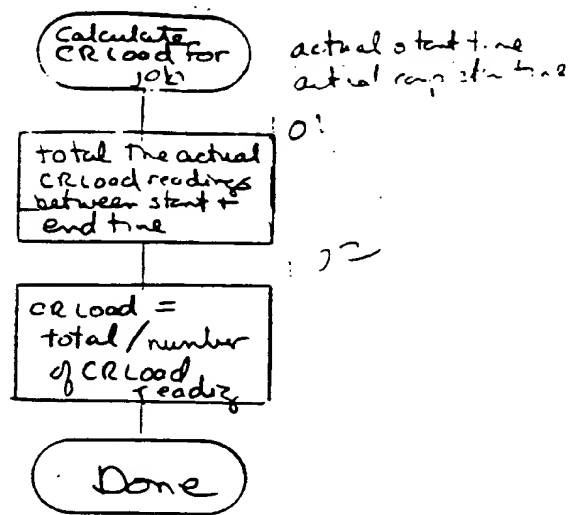 Calculate
CRLoad for
job
actual start time
actual completion time
10:
total the actual
CRLoad readings
between start +
end time
CRLoad =
total / number
of CRLoad
reading
Done